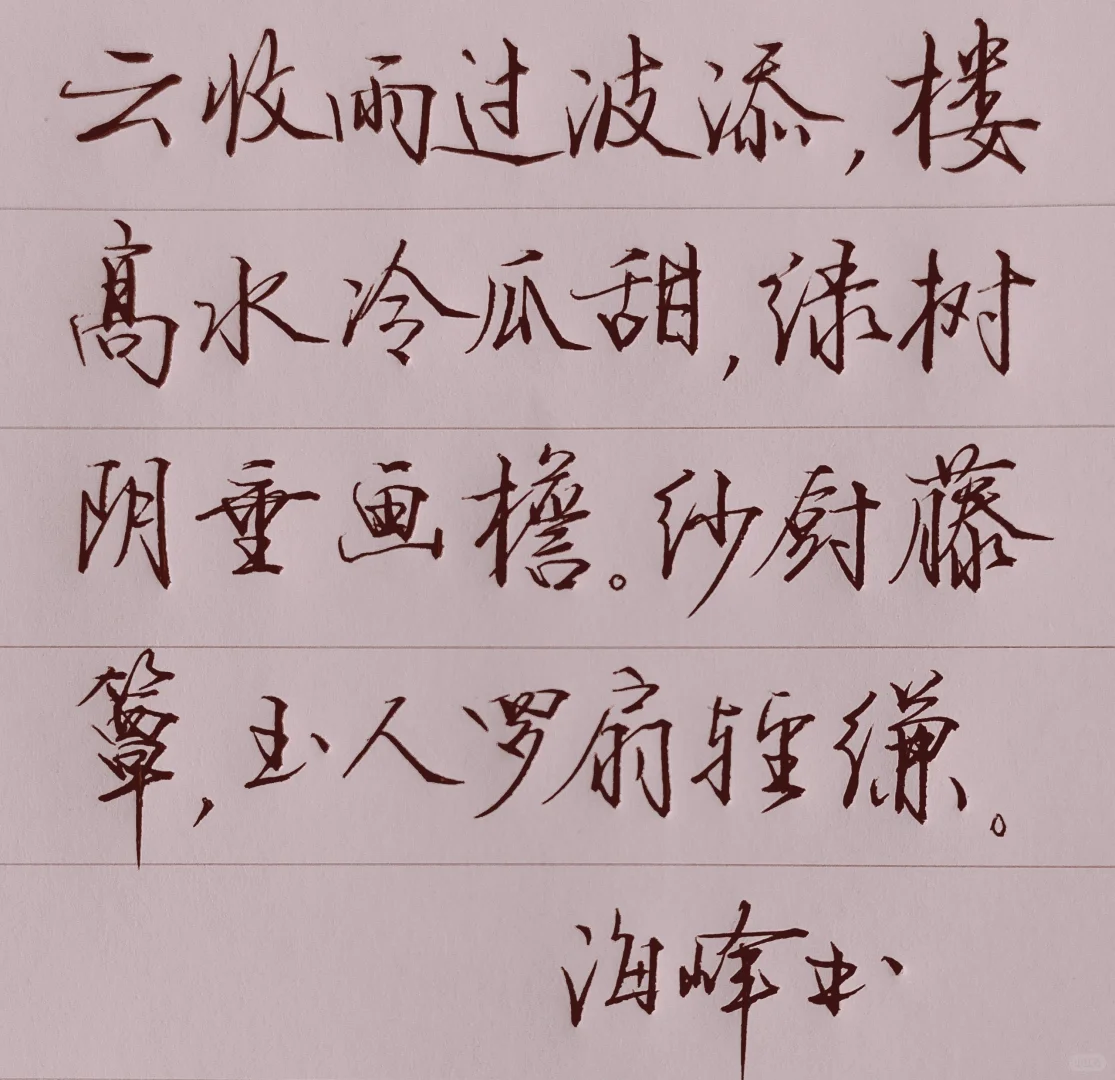 云收雨过波添，楼
高水冷瓜甜，绿树
阴垂画檐。纱厨藤
簟，玉人罗扇轻缣。
海峰书